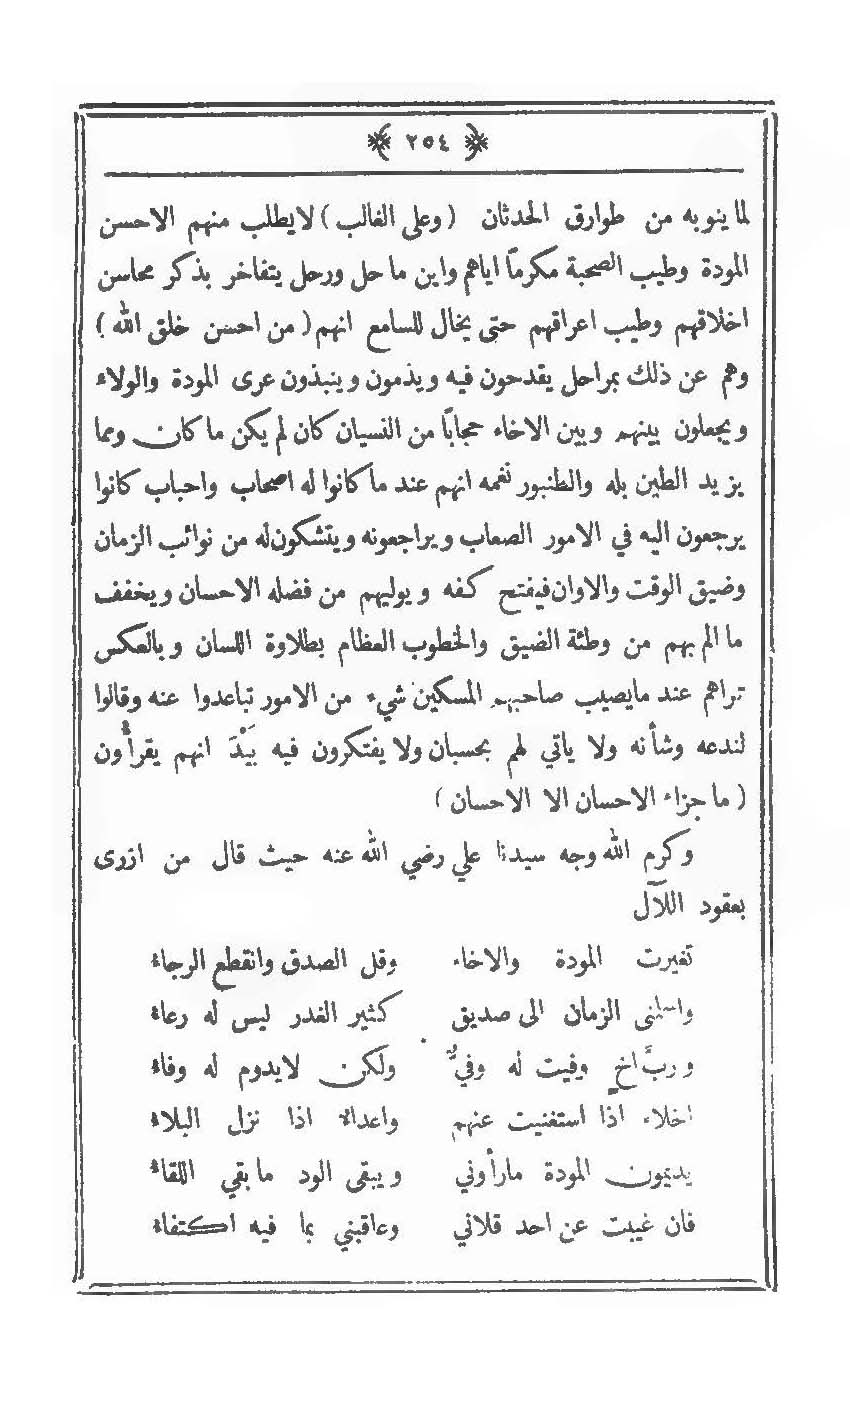 ٢٥٤
لما ينوبه من طوارق الحدثان (وعلى الغالب) لايطلب منهم الاحسن
المودة وطيب الصحبة مكرماً اياهم واين ما حل ورحل يتفاخر بذكر محاسن
اخلاقهم وطيب اعراقهم حتى يخال للسامع انهم (من احسن خلق الله)
وهم عن ذلك بمراحل يقدحون فيه ويذمون وينبذون عرى المودة والولاء
ويجعلون بينهم وبين الاخاء حجاباً من النسيان كان لم يكن ما كان ومما
يزيد الطين بله والطنبور نغمه انهم عند ما كانوا له اصحاب واحباب كانوا
يرجعون اليه في الامور الصعاب ويراجعونه ويتشكون له من نوائب الزمان
وضيق الوقت والاوان فيفتح كفه ويوليهم من فضله الاحسان ويخفف
ما الم بهم من وطئة الضيق والخطوب العظام بطلاوة اللسان وبالعكس
تراهم عند مايصيب صاحبهم المسكين شيء من الامور تباعدوا عنه وقالوا
لندعه وشأنه ولا ياتي لهم بحسبان ولا يفتكرون فيه بَيْدَ انهم يقرأُون
(ما جزاء الاحسان الا الاحسان)
وكرم الله وجه سيدنا علي رضي الله عنه حيث قال من ازرى
بعقود اللآل
تغيرت المودة والاخاء وقل الصدق وانقطع الرجاء
واسلمنى الزمان الى صديق كثير الغدر ليس له رعاء
وربَّ اخٍ وفيت له وفيٌّ ولكن لايدوم له وفاء
اخلاء اذا استغنيت عنهم واعداء اذا نزل البلاء
يديمون المودة مارأوني ويبقى الود ما بقي اللقاء
فان غيبت عن احد قلاني وعاقبني بما فيه اكتفاء